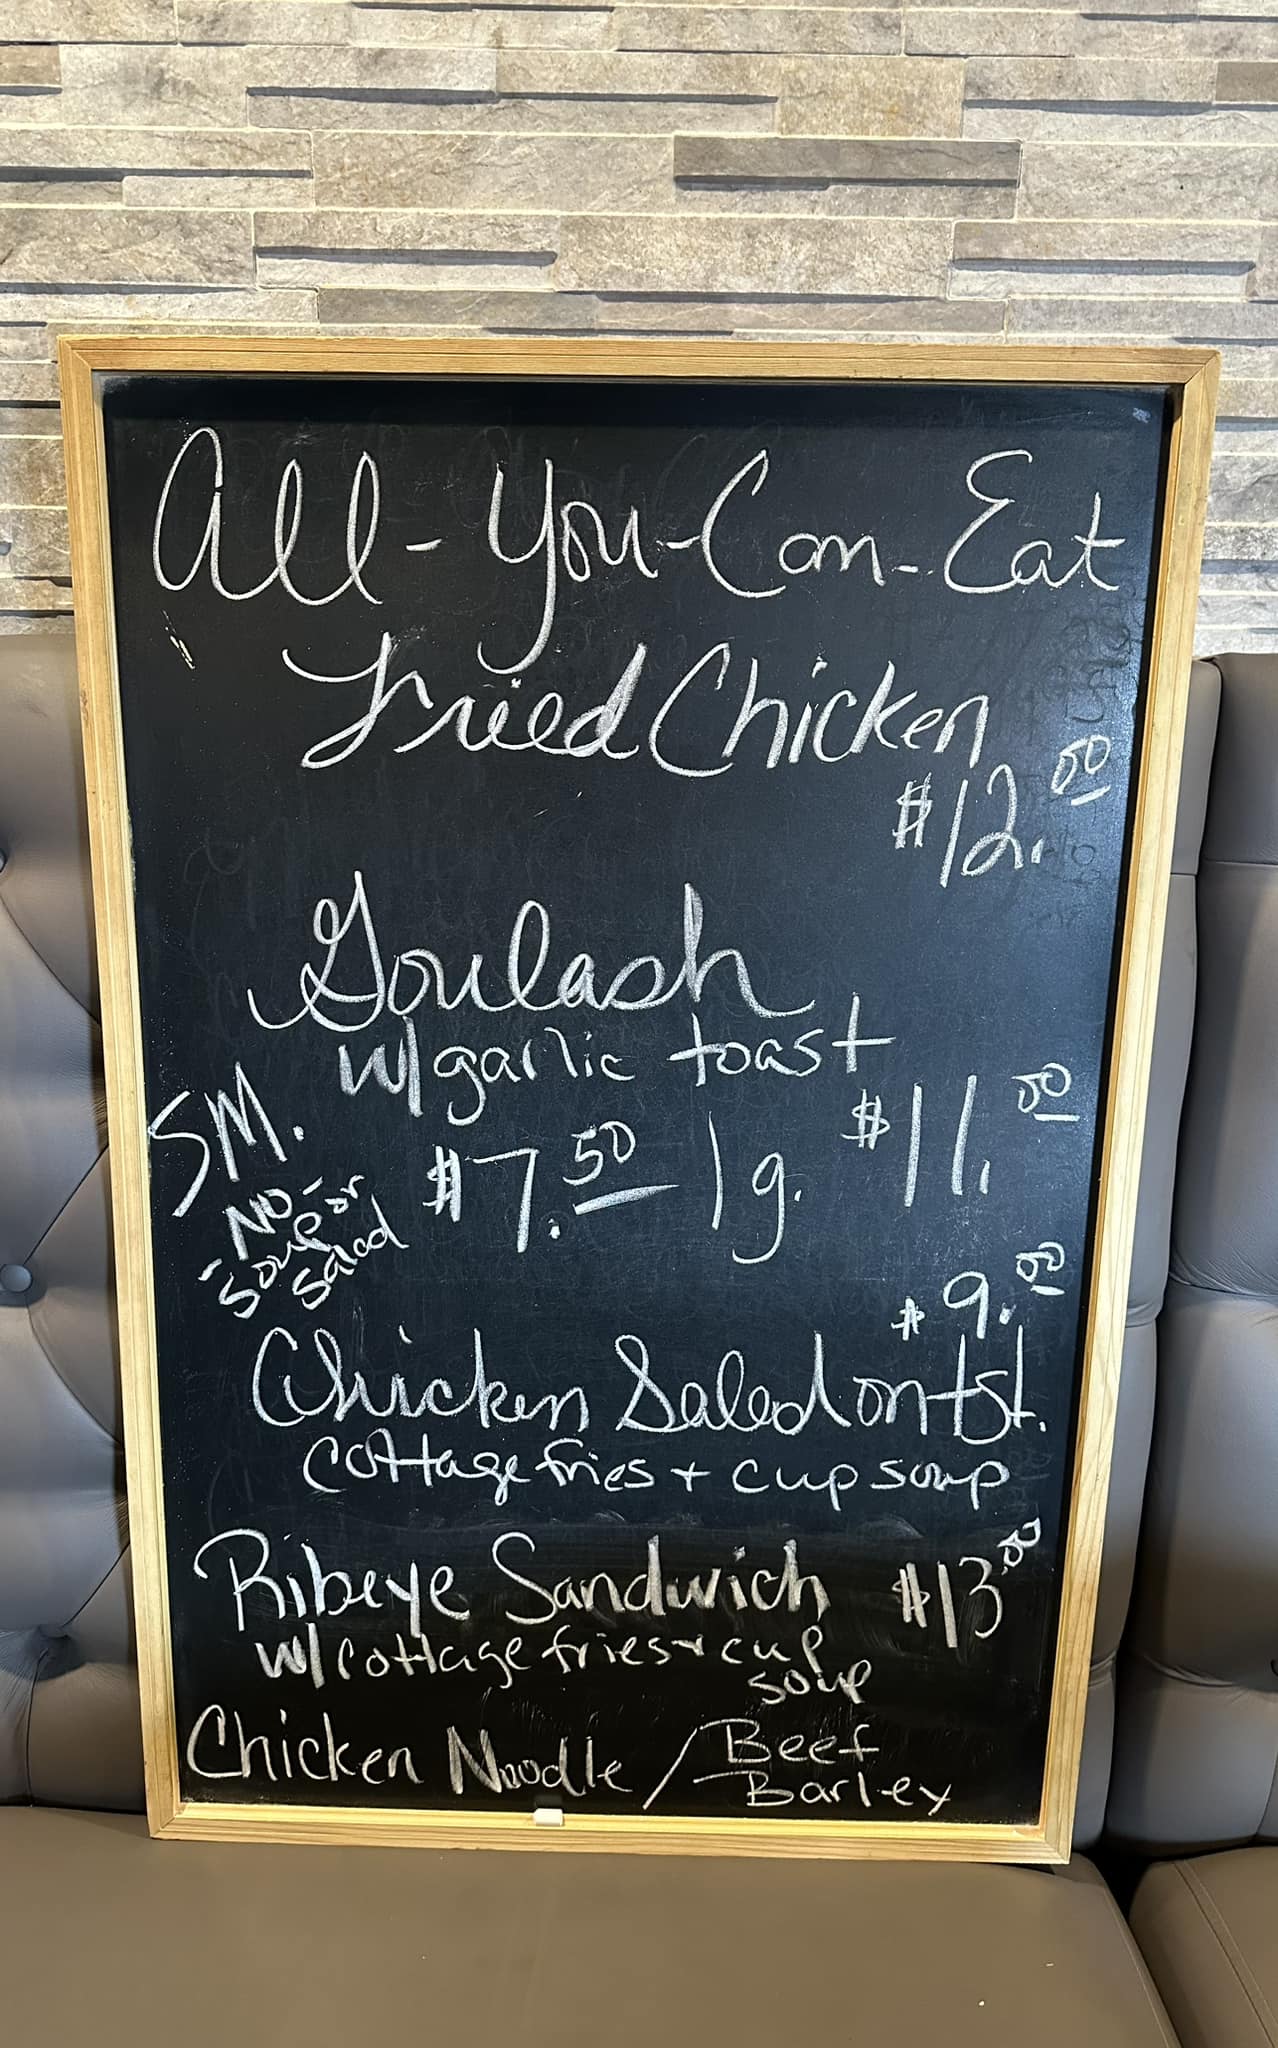 All-You-Can-Eat
Fried Chicken
$12.00
Goulash
w/garlic toast
SM. $7.50 lg. $11.00
-NO-
soup or
salad
$9.00
Chicken Salad on tst.
cottage fries + cup soup
Ribeye Sandwich $13.00
w/cottage fries + cup
soup
Chicken Noodle / Beef
Barley